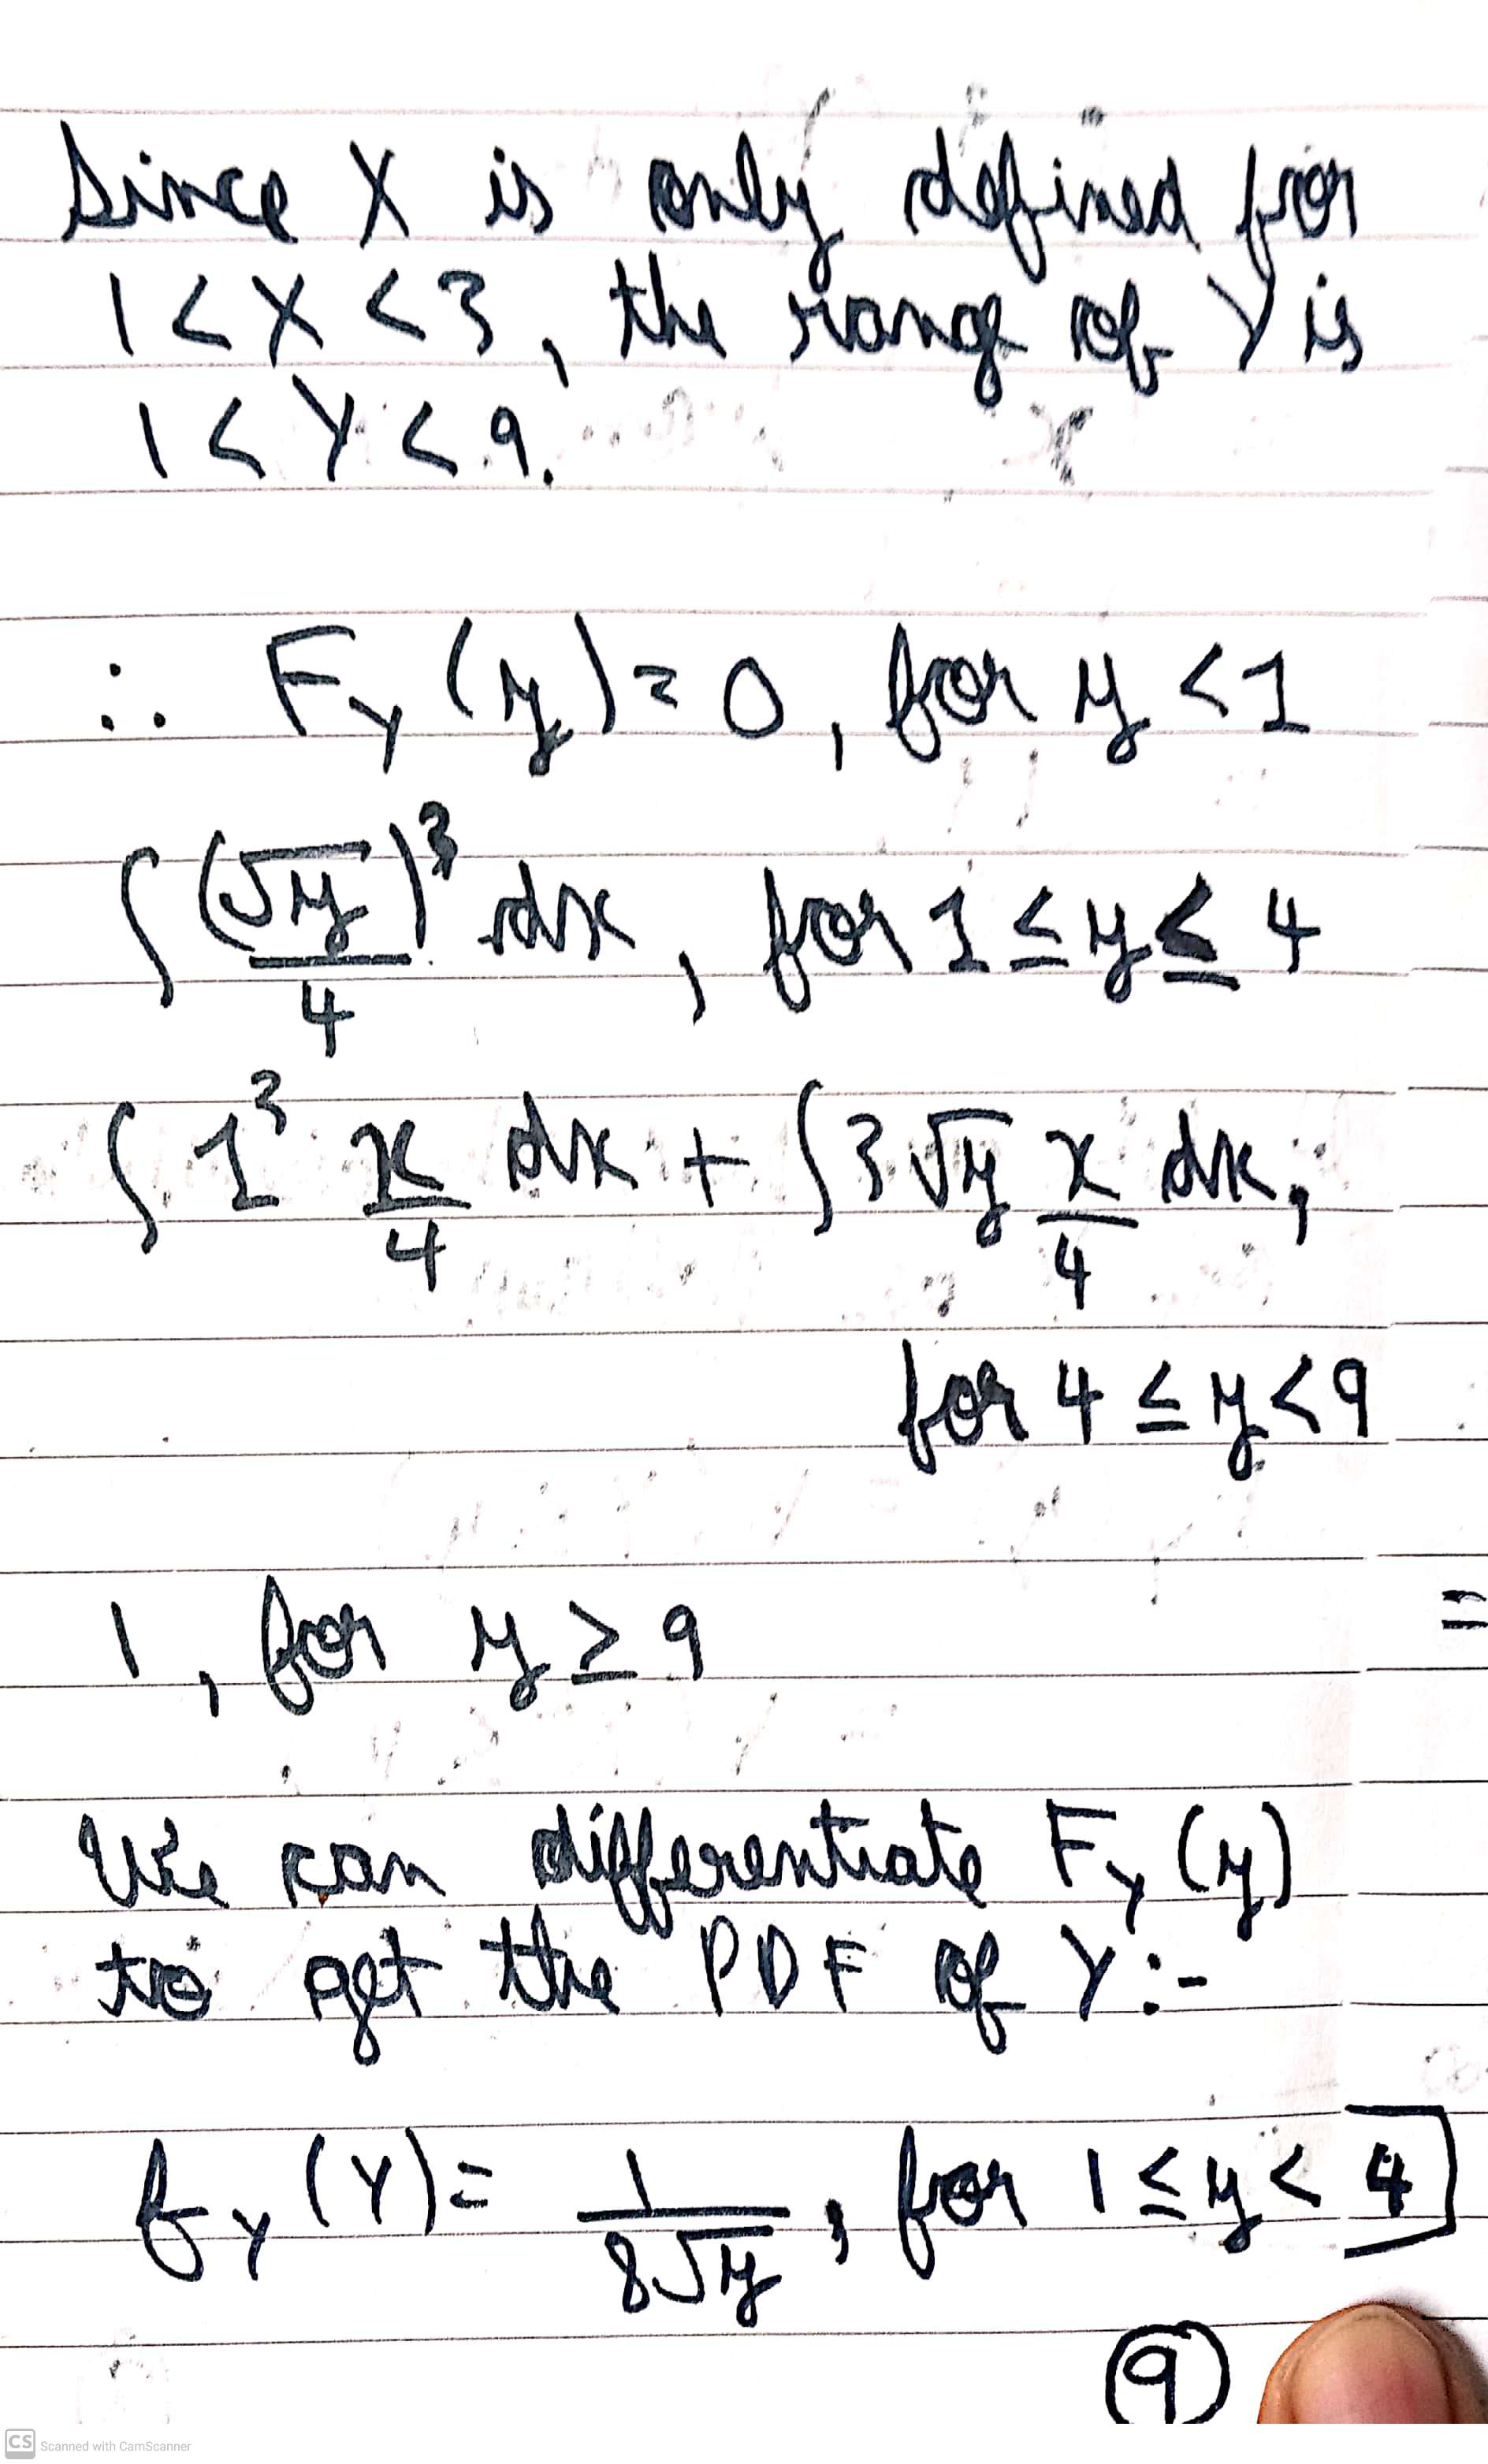 Since X is only defined for
1 < X < 3, the rang of Y is
1 < Y < 9.
∴ F_Y (y) = 0, for y < 1
∫ (√y)³/4 dx, for 1 ≤ y ≤ 4
∫ 1³ x/4 dx + ∫ 3 √y x/4 dx,
for 4 ≤ y < 9
1, for y ≥ 9
=
We can differentiate F_Y (y)
to get the PDF of Y :-
f_Y (Y) = 1/8√y, for 1 ≤ y < 4]
9
CS Scanned with CamScanner